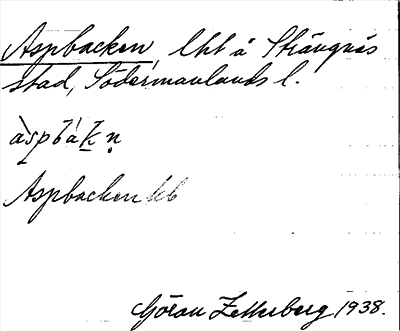 Aspbacken, lht å Strängnäs
stad, Södermanlands l.
àspbákn̥
Aspbacken kb
Göran Zetterberg 1938.